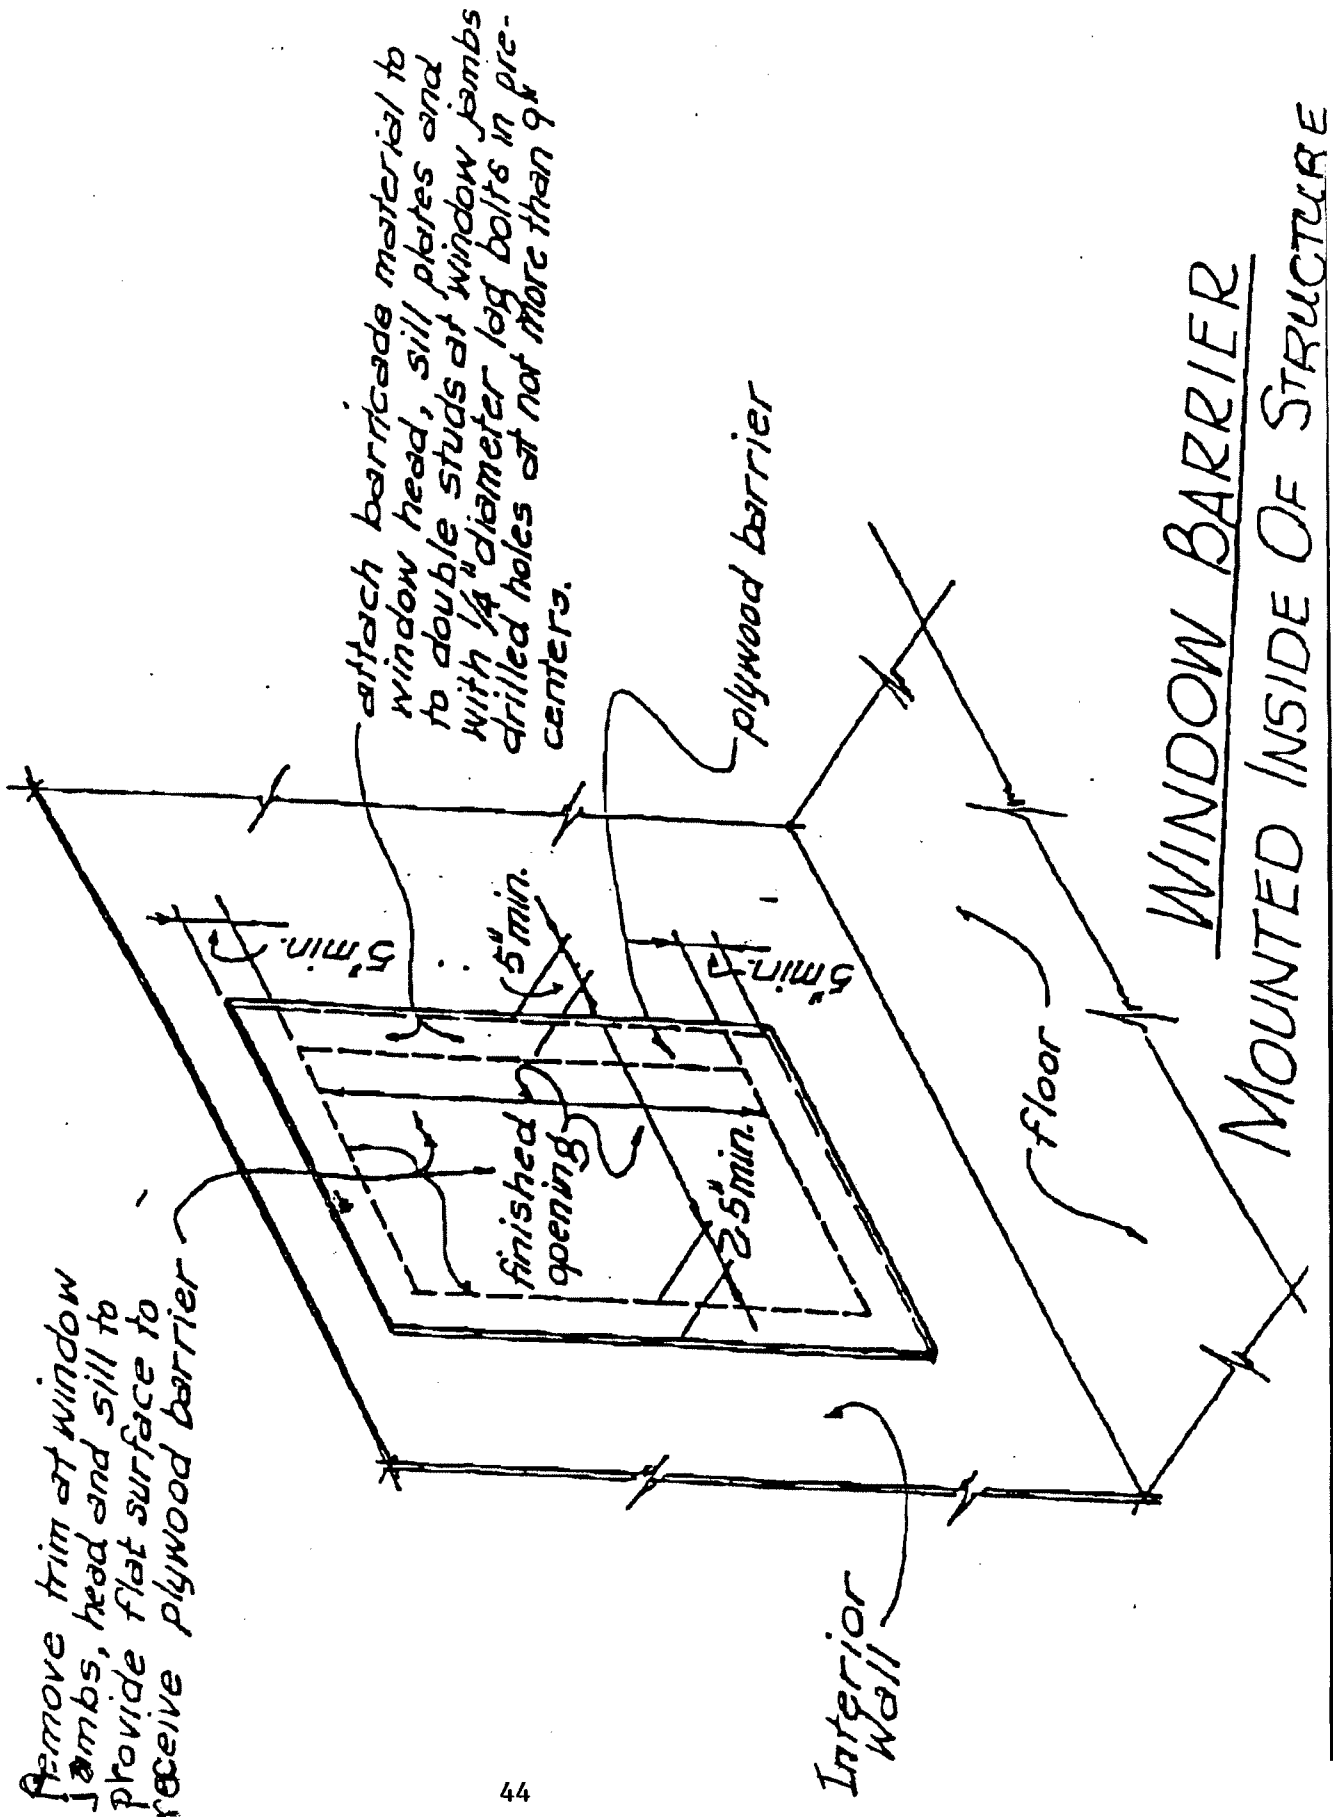 Remove trim at window
Jambs, head and sill to
provide flat surface to
receive plywood barrier
attach barricade material to
window head, sill plates and
to double studs at window jambs
with 1/4" diameter lag bolts in pre-
drilled holes at not more than 9"
centers.
5" min.
5" min.
5" min.
finished
opening
2.5" min.
plywood barrier
Interior
Wall
floor
WINDOW BARRIER
MOUNTED INSIDE OF STRUCTURE
44